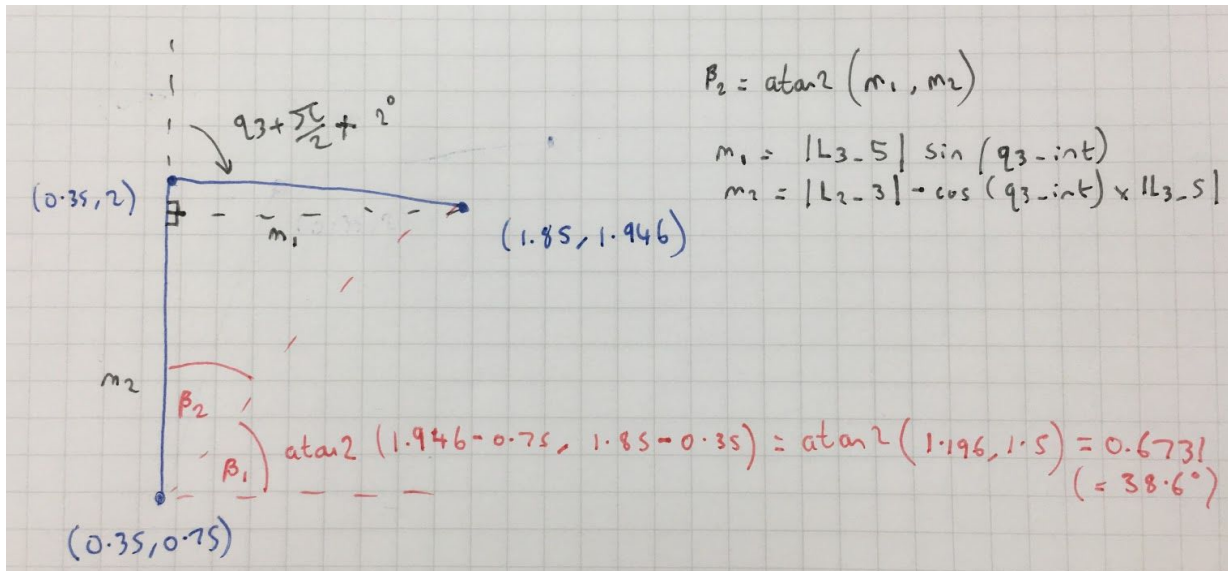 β₂ = atan2 (m₁, m₂)
q3 + π/2 + 2°
m₁ = |L3_5| sin (q3_int)
m₂ = |L2_3| - cos (q3_int) × |L3_5|
(0.35, 2)
m₁
(1.85, 1.946)
m₂
β₂
β₁
atan2 (1.946-0.75, 1.85-0.35) = atan2 (1.196, 1.5) = 0.6731
(= 38.6°)
(0.35, 0.75)